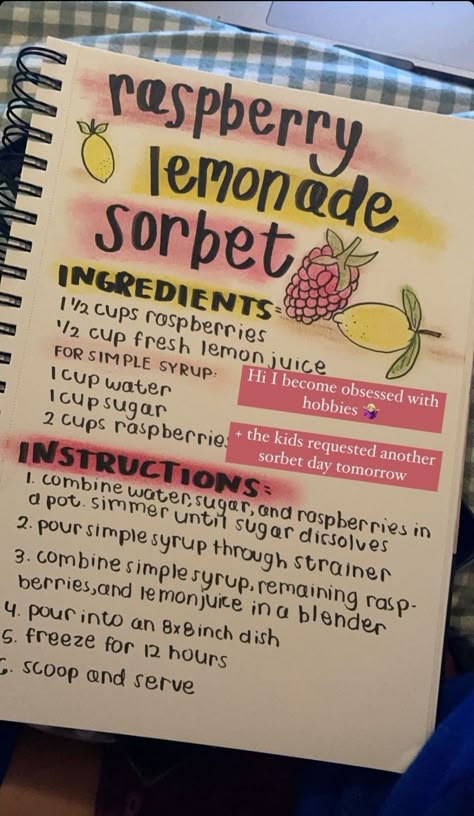 raspberry
lemonade
sorbet
INGREDIENTS:
1 1/2 cups raspberries
1/2 cup fresh lemon juice
FOR SIMPLE SYRUP:
1 cup water
1 cup sugar
2 cups raspberries
Hi I become obsessed with
hobbies 🤷🏼‍♀️
+ the kids requested another
sorbet day tomorrow
INSTRUCTIONS:
1. combine water, sugar, and raspberries in
a pot. simmer until sugar dissolves
2. pour simple syrup through strainer
3. combine simple syrup, remaining rasp-
berries, and lemon juice in a blender
4. pour into an 8x8 inch dish
5. freeze for 12 hours
6. scoop and serve